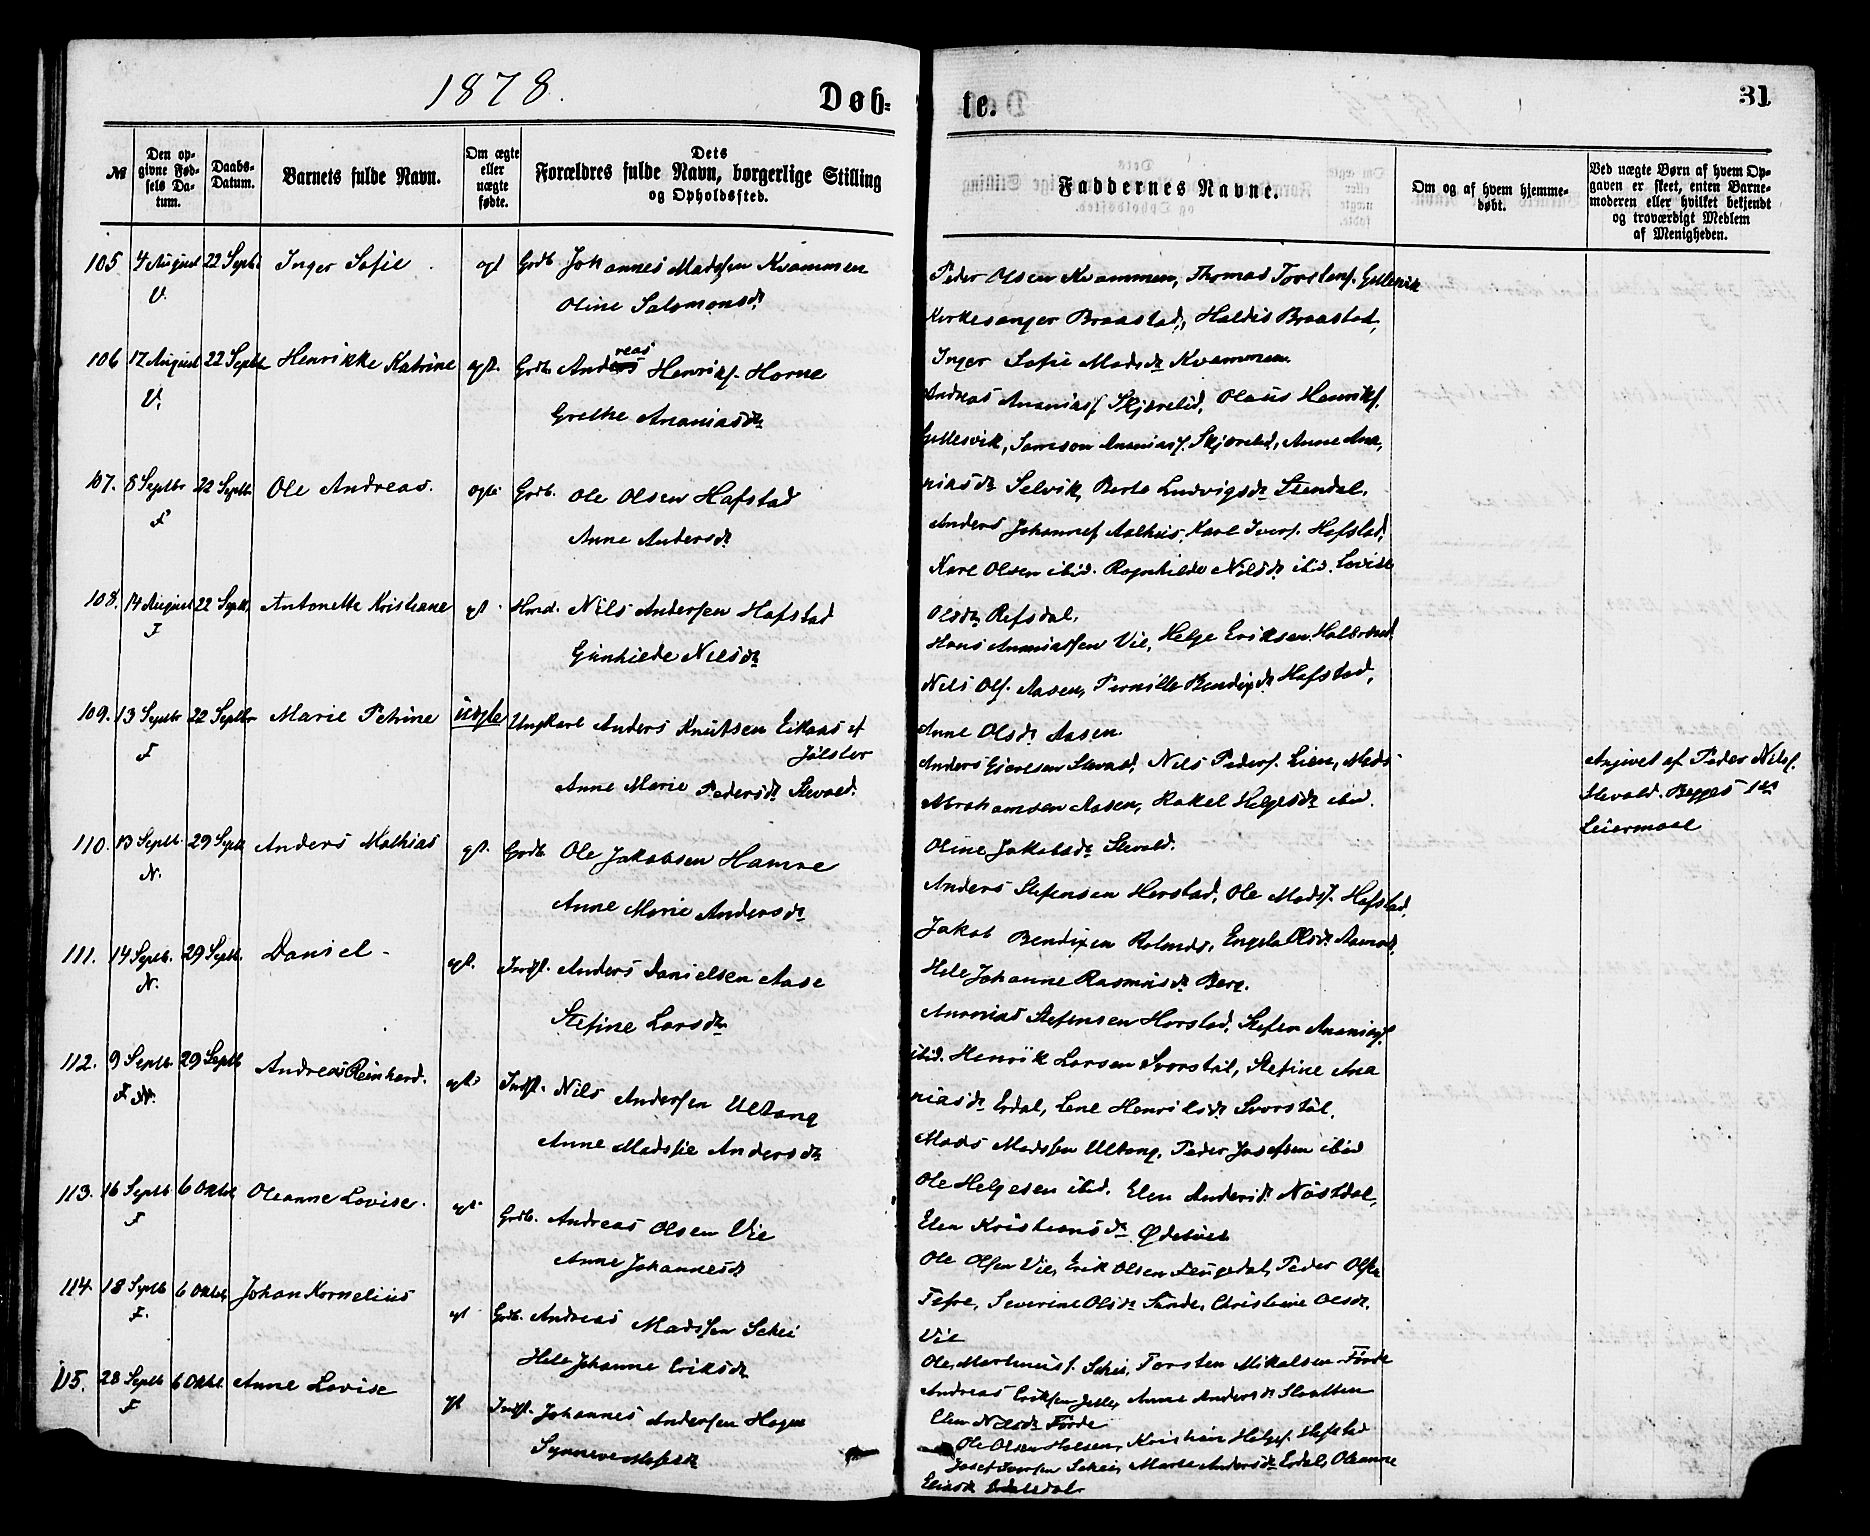 1878.
Døb-
te.
31
№
Den op-
givne Fød-
sels Da-
tum.
Daabs-
Datum.
Barnets fulde Navn.
Om ægte
eller
uægte
fødte.
Dets
Forældres fulde Navn, borgerlige Stilling
og Opholdssted.
Faddernes Navne.
Om og af hvem hjemme-
døbt.
Ved uægte Børn af hvem Op-
gaven er skeet, enten Barne-
moderen eller hvilket bekjendt
og troværdigt Medlem
af Menigheden.
105 4 August 22 Septb. Inger Sofie. Grdb. Johannes Madssen Kvammen
V. Oline Salomonsdr
Peder Olsen Kvammen, Thomas Torstens. Gillesvik
Kirkesanger Braastad, Haldis Braastad,
Inger Sofie Madsdr Kvammen.
106 17 August 22 Septb Henrikke Katrine ægt. Grdb. Andreas Henriks. Horne
V. Grethe Ananiasdr
Andreas Ananiass. Skjærelid, Olaus Henriks.
Gillesvik, Samson Ananiass. Skjærelid, Anne Ana,
niasdr Selvik, Berte Ludvigsdr Stendal.
107. 8 Septbr 22 Septb. Ole Andreas. ægte Grdb. Ole Olsen Hafstad
F Anne Andersdr
Anders Johanness. Aalhus, Karl Ivers. Hafstad,
Karl Olsen ibid. Ragnhilde Nilsdr ibid. Lovise
Olsdr Refsdal.
108. 14 August 22 Septb. Antonette Kristiane ægt Hmd. Nils Anderssen Hafstad
F Gunhilde Nilsdr
Hans Ananiassen Vie, Helge Eriksen Halbrend,
Nils Ols. Aasen, Pernille Bendixdr Hafstad,
Anne Olsdr Aasen.
109. 13 Septbr 22 Septbr Marie Petrine uægte Ungkarl Anders Knutsen Eikaas af
Jølster
F Anne Marie Pedersdr Slevold.
Anders Slevold, Nils Peders. Lien, Mads
Abrahamsen Aasen, Rakel Helgesdr ibid.
Oline Jakobsdr Slevold.
Angivet af Peder Nils.
Slevold. Begges 1ste
Leiermaal
110. 13 Septb. 29 Septb Anders Mathias ægt. Grdb Ole Jakobsen Hamre
N. Anne Marie Andersdr
Anders Stefensen Horstad, Ole Madss. Hafstad,
Jakob Bendixen, Engela Olsdr
Hele Johanne Rasmusdr Berg.
111. 14 Septb. 29 Septb. Daniel ægt. Indst. Anders Danielsen Aase
N. Stefine Larsdr
Ananias Stefensen Horstad, Stefen Ananiass.
ibid. Henrik Larsen Svorstøl, Stefine Ana
niasdr Erdal, Lene Henriksdr Svorstøl.
112. 9 Septb. 29 Septb Andreas Reinhard. ægt. Indst. Nils Anderssen Ultang
F N. Anne Madssie Andersdr
Mads Madssen Ultang, Peder Josefsen ibid
Ole Helgesen ibid. Elen Andersdr Nøstdal,
Elen Kristiansdr Ødetvet
113. 16 Septb 6 Oktbr Oleanne Lovise. ægt Grdb. Andreas Olsen Vie
F Anne Johannesdr
Ole Olssen Vie, Erik Olsen, Peder Olsen
Tefre, Severine Olsdr Sande, Christine Olsdr.
Vie
114. 18 Septb 6 Oktb. Johan Kornelius ægt Grdb. Andreas Madssen Schei
F. Hele Johanne Eriksdr
Ole Martinuss. Schei, Torsten Mikalsen Førde
Andreas Erikssen, Anne Andersdr Slaatten
Elen Nilsdr Førde
115. 28 Septb 6 Oktb. Anne Lovise ægt Indst. Johannes Anderssen Hagen
F Synneve
Ole Olsen Halsen, Kristian Helges. Hafstad
Josef Iversen Schei, Marte Andersdr Erdal, Oleanne